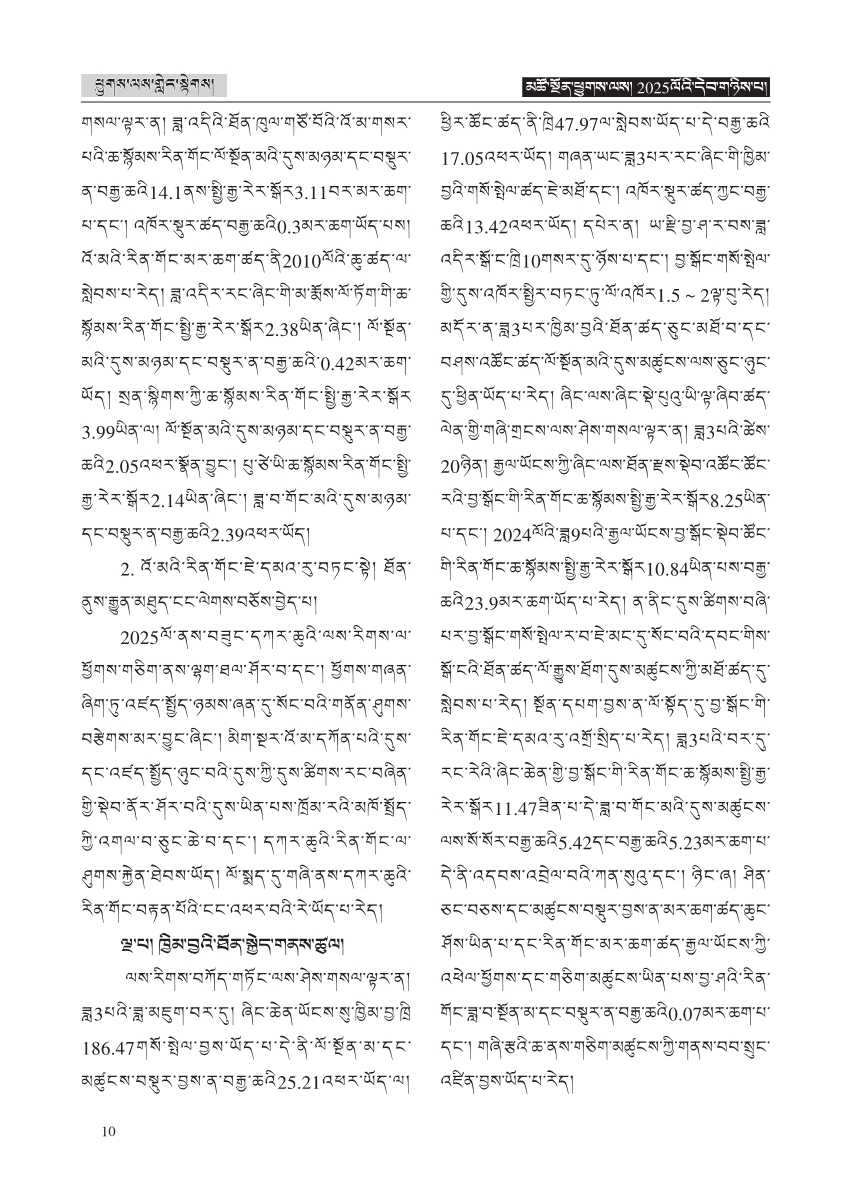 ཕྱུགས་ལས་གླེང་སྟེགས།
མཚོ་སྔོན་ཕྱུགས་ལས། 2025ལོའི་དེབ་གཉིས་པ།
གསལ་ལྟར་ན། ཟླ་འདིའི་ཐོན་ཁུལ་གཙོ་བོའི་འོ་མ་གསར་
པའི་ཆ་སྙོམས་རིན་གོང་ལོ་སྔོན་མའི་དུས་མཉམ་དང་བསྡུར་
ན་བརྒྱ་ཆའི14.1ནས་སྤྱི་རྒྱ་རེར་སྒོར3.11བར་མར་ཆག་
པ་དང་། འཁོར་སྡུར་ཚད་བརྒྱ་ཆའི0.3མར་ཆག་ཡོད་པས།
འོ་མའི་རིན་གོང་མར་ཆག་ཚད་ནི2010ལོའི་ཆུ་ཚད་ལ་
སླེབས་པ་རེད། ཟླ་འདིར་རང་ཞིང་གི་མ་རྨོས་ལོ་ཏོག་གི་ཆ་
སྙོམས་རིན་གོང་སྤྱི་རྒྱ་རེར་སྒོར2.38ཡིན་ཞིང་། ལོ་སྔོན་
མའི་དུས་མཉམ་དང་བསྡུར་ན་བརྒྱ་ཆའི་0.42མར་ཆག་
ཡོད། སྲན་སྙིགས་ཀྱི་ཆ་སྙོམས་རིན་གོང་སྤྱི་རྒྱ་རེར་སྒོར
3.99ཡིན་ལ། ལོ་སྔོན་མའི་དུས་མཉམ་དང་བསྡུར་ན་བརྒྱ་
ཆའི2.05འཕར་སྣོན་བྱུང་། པུ་ཙེ་ཡི་ཆ་སྙོམས་རིན་གོང་སྤྱི་
རྒྱ་རེར་སྒོར2.14ཡིན་ཞིང་། ཟླ་བ་གོང་མའི་དུས་མཉམ་
དང་བསྡུར་ན་བརྒྱ་ཆའི2.39འཕར་ཡོད།
2. འོ་མའི་རིན་གོང་ཇེ་དམའ་རུ་བཏང་སྟེ། ཐོན་
ནུས་རྒྱུན་མཐུད་ངང་ལེགས་བཅོས་བྱེད་པ།
2025ལོ་ནས་བཟུང་དཀར་ཆུའི་ལས་རིགས་ལ་
ཕྱོགས་གཅིག་ནས་ལྷག་ཐལ་ཤོར་བ་དང་། ཕྱོགས་གཞན་
ཞིག་ཏུ་འཛད་སྤྱོད་ཉམས་ཞན་དུ་སོང་བའི་གནོན་ཤུགས་
བརྩེགས་མར་བྱུང་ཞིང་། མིག་སྔར་འོ་མ་དཀོན་པའི་དུས་
དང་འཛད་སྤྱོད་ཉུང་བའི་དུས་ཀྱི་དུས་ཚིགས་རང་བཞིན་
གྱི་སྡེབ་ནོར་ཤོར་བའི་དུས་ཡིན་པས་ཁྲོམ་རའི་མཁོ་སྤྲོད་
ཀྱི་འགལ་བ་ཅུང་ཆེ་བ་དང་། དཀར་ཆུའི་རིན་གོང་ལ་
ཤུགས་རྐྱེན་ཐེབས་ཡོད། ལོ་སྨད་དུ་གཞི་ནས་དཀར་ཆུའི་
རིན་གོང་བརྟན་པོའི་ངང་འཕར་བའི་རེ་ཡོད་པ་རེད།
ལྔ་པ། ཁྱིམ་བྱའི་ཐོན་སྐྱེད་གནས་ཚུལ།
ལས་རིགས་བཀོད་གཏོང་ལས་ཤེས་གསལ་ལྟར་ན།
ཟླ3པའི་ཟླ་མཇུག་བར་དུ། ཞིང་ཆེན་ཡོངས་སུ་ཁྱིམ་བྱ་ཁྲི
186.47གསོ་སྤེལ་བྱས་ཡོད་པ་དེ་ནི་ལོ་སྔོན་མ་དང་
མཚུངས་བསྡུར་བྱས་ན་བརྒྱ་ཆའི25.21འཕར་ཡོད་ལ།
ཕྱིར་ཚོང་ཚད་ནི་ཁྲི47.97ལ་སླེབས་ཡོད་པ་དེ་བརྒྱ་ཆའི
17.05འཕར་ཡོད། གཞན་ཡང་ཟླ3པར་རང་ཞིང་གི་ཁྱིམ་
བྱའི་གསོ་སྤེལ་ཚད་ཇེ་མཐོ་དང་། འཁོར་སྡུར་ཚད་ཀྱང་བརྒྱ་
ཆའི13.42འཕར་ཡོད། དཔེར་ན། ཡ་རྫི་བྱ་ཤ་ར་བས་ཟླ་
འདིར་སྒོ་ང་ཁྲི10གསར་དུ་ཉོས་པ་དང་། བྱ་སྒོང་གསོ་སྤེལ་
གྱི་དུས་འཁོར་སྤྱིར་བཏང་ཏུ་ལོ་འཁོར1.5 ~ 2ལྟ་བུ་རེད།
མདོར་ན་ཟླ3པར་ཁྱིམ་བྱའི་ཐོན་ཚད་ཅུང་མཐོ་བ་དང་
བཤས་འཚོང་ཚད་ལོ་སྔོན་མའི་དུས་མཚུངས་ལས་ཅུང་ཉུང་
དུ་ཕྱིན་ཡོད་པ་རེད། ཞིང་ལས་ཞིང་སྡེ་པུའུ་ཡི་ལྟ་ཞིབ་ཚད་
ལེན་གྱི་གཞི་གྲངས་ལས་ཤེས་གསལ་ལྟར་ན། ཟླ3པའི་ཚེས་
20ཉིན། རྒྱལ་ཡོངས་ཀྱི་ཞིང་ལས་ཐོན་རྫས་སྡེབ་འཚོང་ཚོང་
རའི་བྱ་སྒོང་གི་རིན་གོང་ཆ་སྙོམས་སྤྱི་རྒྱ་རེར་སྒོར8.25ཡིན་
པ་དང་། 2024ལོའི་ཟླ9པའི་རྒྱལ་ཡོངས་བྱ་སྒོང་སྡེབ་ཚོང་
གི་རིན་གོང་ཆ་སྙོམས་སྤྱི་རྒྱ་རེར་སྒོར10.84ཡིན་པས་བརྒྱ་
ཆའི23.9མར་ཆག་ཡོད་པ་རེད། ན་ནིང་དུས་ཚིགས་བཞི་
པར་བྱ་སྒོང་གསོ་སྤེལ་ར་བ་ཇེ་མང་དུ་སོང་བའི་དབང་གིས་
སྒོ་ངའི་ཐོན་ཚད་ལོ་རྒྱུས་ཐོག་དུས་མཚུངས་ཀྱི་མཐོ་ཚད་དུ་
སླེབས་པ་རེད། སྔོན་དཔག་བྱས་ན་ལོ་སྟོད་དུ་བྱ་སྒོང་གི་
རིན་གོང་ཇེ་དམའ་རུ་འགྲོ་སྲིད་པ་རེད། ཟླ3པའི་བར་དུ་
རང་རེའི་ཞིང་ཆེན་གྱི་བྱ་སྒོང་གི་རིན་གོང་ཆ་སྙོམས་སྤྱི་རྒྱ་
རེར་སྒོར11.47ཟིན་པ་དེ་ཟླ་བ་གོང་མའི་དུས་མཚུངས་
ལས་སོ་སོར་བརྒྱ་ཆའི5.42དང་བརྒྱ་ཆའི5.23མར་ཆག་པ་
དེ་ནི་འདབས་འབྲེལ་བའི་ཀན་སུའུ་དང་། ཉིང་ཞ། ཤིན་
ཅང་བཅས་དང་མཚུངས་བསྡུར་བྱས་ན་མར་ཆག་ཚད་ཆུང་
ཤོས་ཡིན་པ་དང་རིན་གོང་མར་ཆག་ཚད་རྒྱལ་ཡོངས་ཀྱི་
འཕེལ་ཕྱོགས་དང་གཅིག་མཚུངས་ཡིན་པས་བྱ་ཤའི་རིན་
གོང་ཟླ་བ་སྔོན་མ་དང་བསྡུར་ན་བརྒྱ་ཆའི0.07མར་ཆག་པ་
དང་། གཞི་རྩའི་ཆ་ནས་གཅིག་མཚུངས་ཀྱི་གནས་བབ་སྲུང་
འཛིན་བྱས་ཡོད་པ་རེད།
10